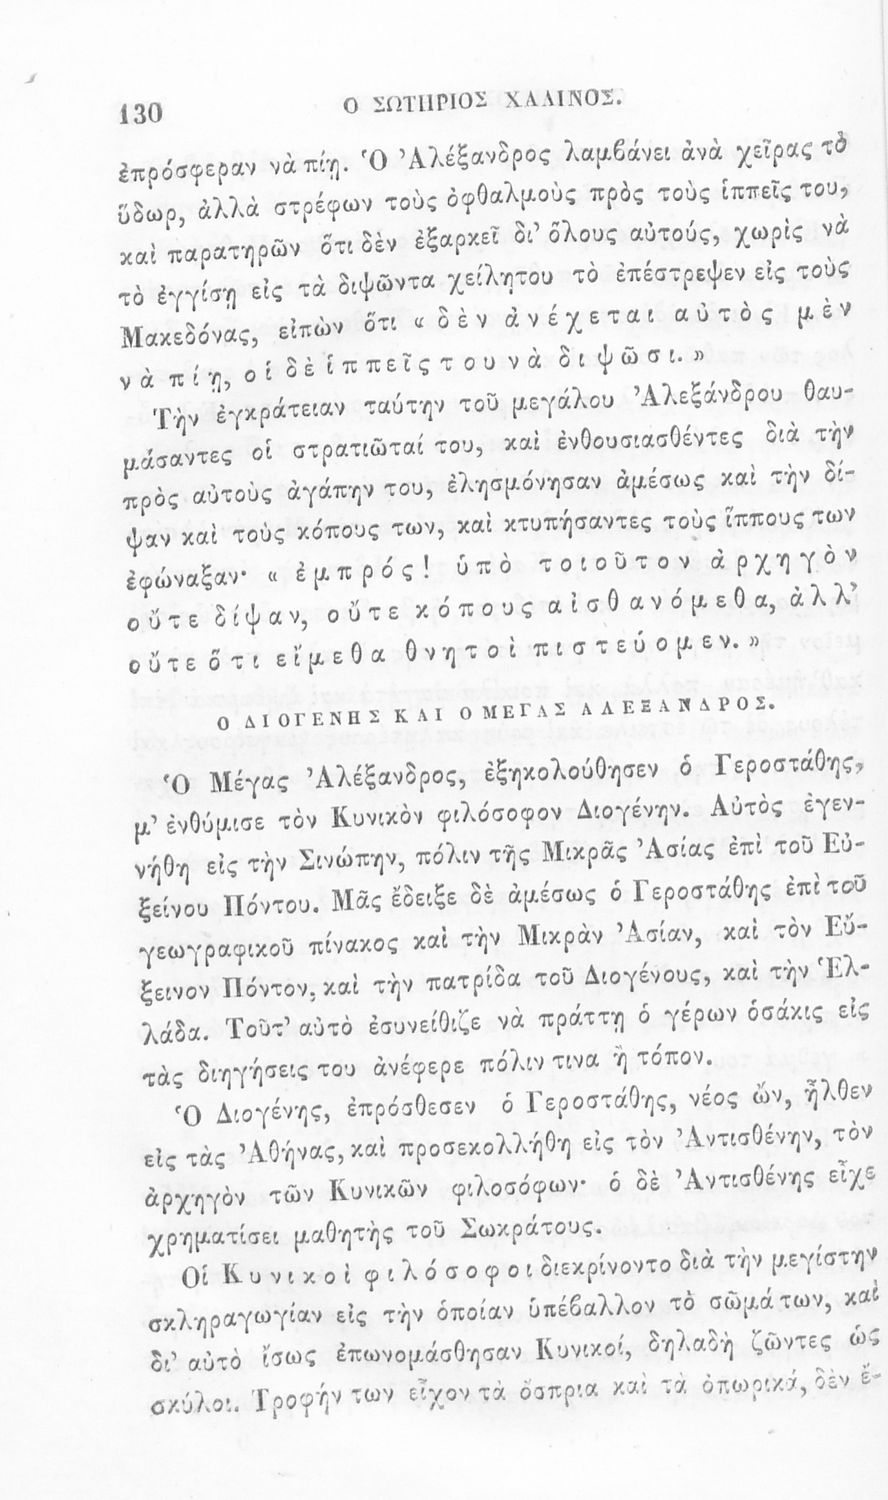 130
Ο ΣΩΤΗΡΙΟΣ ΧΑΛΙΝΟΣ.
ἐπρόσφεραν νὰ πίῃ. Ὁ Ἀλέξανδρος λαμβάνει ἀνὰ χεῖρας τὸ
ὕδωρ, ἀλλὰ στρέφων τοὺς ὀφθαλμοὺς πρὸς τοὺς ἱππεῖς του,
καὶ παρατηρῶν ὅτι δὲν ἐξαρκεῖ δι' ὅλους αὐτούς, χωρὶς νὰ
τὸ ἐγγίσῃ εἰς τὰ διψῶντα χείλητου τὸ ἐπέστρεψεν εἰς τοὺς
Μακεδόνας, εἰπὼν ὅτι « δὲν ἀνέχεται αὐτὸς μὲν
νὰ πίῃ, οἱ δὲ ἱππεῖς του νὰ διψῶσι. »
Τὴν ἐγκράτειαν ταύτην τοῦ μεγάλου Ἀλεξάνδρου θαυ-
μάσαντες οἱ στρατιῶταί του, καὶ ἐνθουσιασθέντες διὰ τὴν
πρὸς αὐτοὺς ἀγάπην του, ἐλησμόνησαν ἀμέσως καὶ τὴν δί-
ψαν καὶ τοὺς κόπους των, καὶ κτυπήσαντες τοὺς ἵππους των
ἐφώναξαν· « ἐμπρός! ὑπὸ τοιοῦτον ἀρχηγὸν
οὔτε δίψαν, οὔτε κόπους αἰσθανόμεθα, ἀλλ'
οὔτε ὅτι εἴμεθα θνητοὶ πιστεύομεν. »
Ο ΔΙΟΓΕΝΗΣ ΚΑΙ Ο ΜΕΓΑΣ ΑΛΕΞΑΝΔΡΟΣ.
Ὁ Μέγας Ἀλέξανδρος, ἐξηκολούθησεν ὁ Γεροστάθης,
μ' ἐνθύμισε τὸν Κυνικὸν φιλόσοφον Διογένην. Αὐτὸς ἐγεν-
νήθη εἰς τὴν Σινώπην, πόλιν τῆς Μικρᾶς Ἀσίας ἐπὶ τοῦ Εὐ-
ξείνου Πόντου. Μᾶς ἔδειξε δὲ ἀμέσως ὁ Γεροστάθης ἐπὶ τοῦ
γεωγραφικοῦ πίνακος καὶ τὴν Μικρὰν Ἀσίαν, καὶ τὸν Εὔ-
ξεινον Πόντον, καὶ τὴν πατρίδα τοῦ Διογένους, καὶ τὴν Ἑλ-
λάδα. Τοῦτ' αὐτὸ ἐσυνείθιζε νὰ πράττῃ ὁ γέρων ὁσάκις εἰς
τὰς διηγήσεις του ἀνέφερε πόλιν τινα ἢ τόπον.
Ὁ Διογένης, ἐπρόσθεσεν ὁ Γεροστάθης, νέος ὤν, ἦλθεν
εἰς τὰς Ἀθήνας, καὶ προσεκολλήθη εἰς τὸν Ἀντισθένην, τὸν
ἀρχηγὸν τῶν Κυνικῶν φιλοσόφων· ὁ δὲ Ἀντισθένης εἶχε
χρηματίσει μαθητὴς τοῦ Σωκράτους.
Οἱ Κυνικοὶ φιλόσοφοι διεκρίνοντο διὰ τὴν μεγίστην
σκληραγωγίαν εἰς τὴν ὁποίαν ὑπέβαλλον τὸ σῶμά των, καὶ
δι' αὐτὸ ἴσως ἐπωνομάσθησαν Κυνικοί, δηλαδὴ ζῶντες ὡς
σκύλοι. Τροφήν των εἶχον τὰ ὄσπρια καὶ τὰ ὀπωρικά, δὲν ἐ-